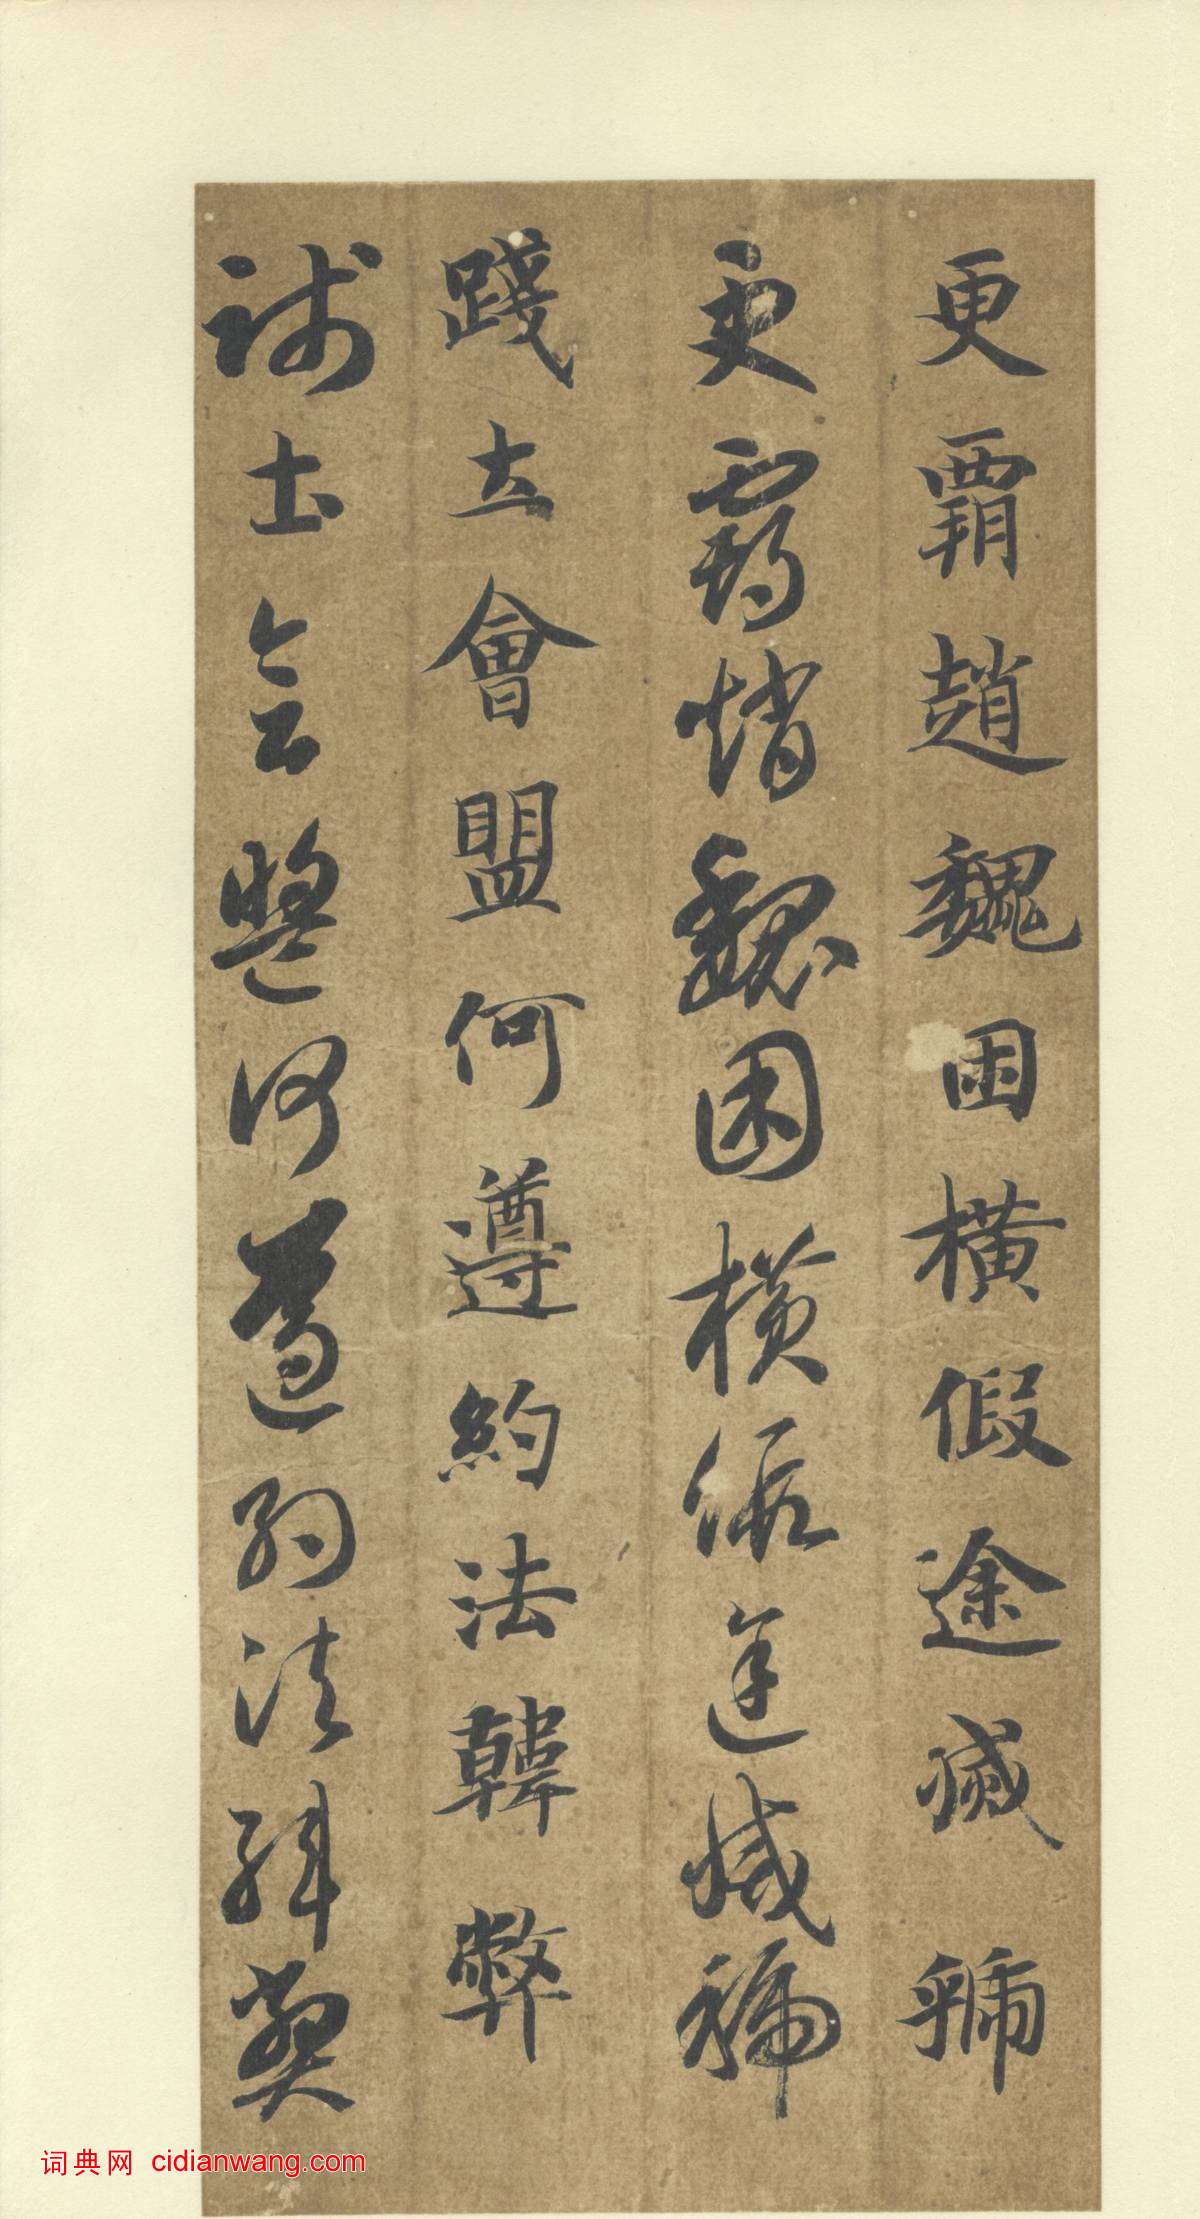 更覇趙魏困橫假途滅虢
更覇趙魏困橫假途滅虢
踐土會盟何遵約法韓弊
踐土會盟何遵約法韓弊
词典网 cidianwang.com